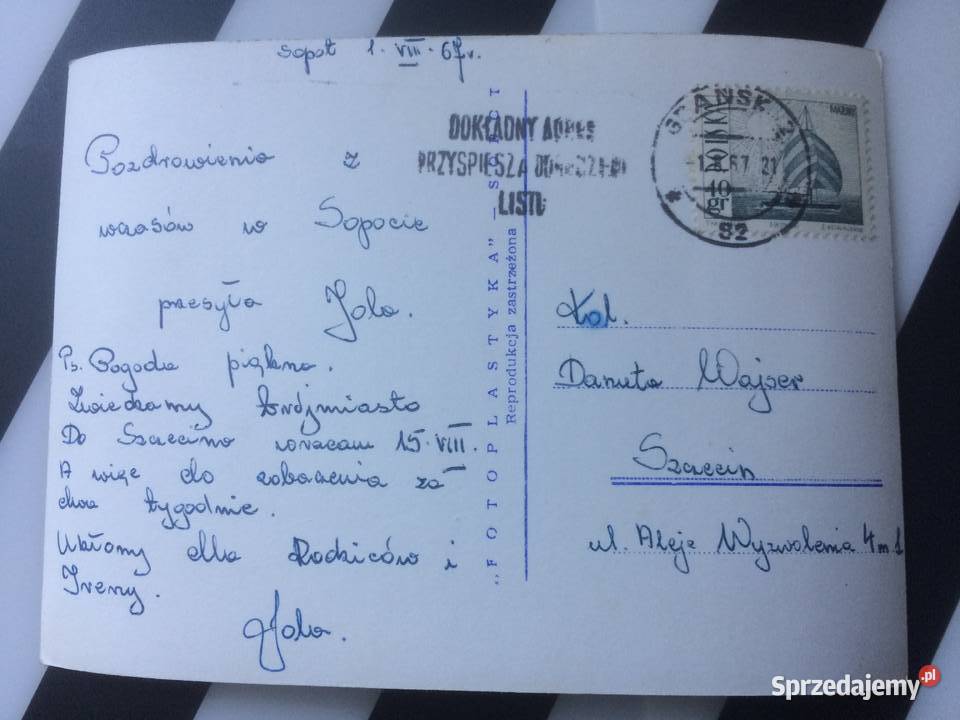 Sopot 1. VIII. 67r.
Pozdrowienia z
wczasów w Sopocie
przesyła Jola.
Ps. Pogoda piękna.
Zwiedzamy trójmiasto
Do Szczecina wracam 15.VIII.
A więc do zobaczenia za
dwa tygodnie.
Ukłony dla Rodziców i
Ireny.
Jola.
"FOTOPLASTYKA" — SOPOT
Reprodukcja zastrzeżona
DOKŁADNY ADRES
PRZYSPIESZA DORĘCZENIE
LISTU
GDAŃSK 2
67 21
82
POLSKA
40 gr
Kol.
Danuta Wajser
Szczecin
ul. Aleje Wyzwolenia 4 m 1
Sprzedajemy.pl